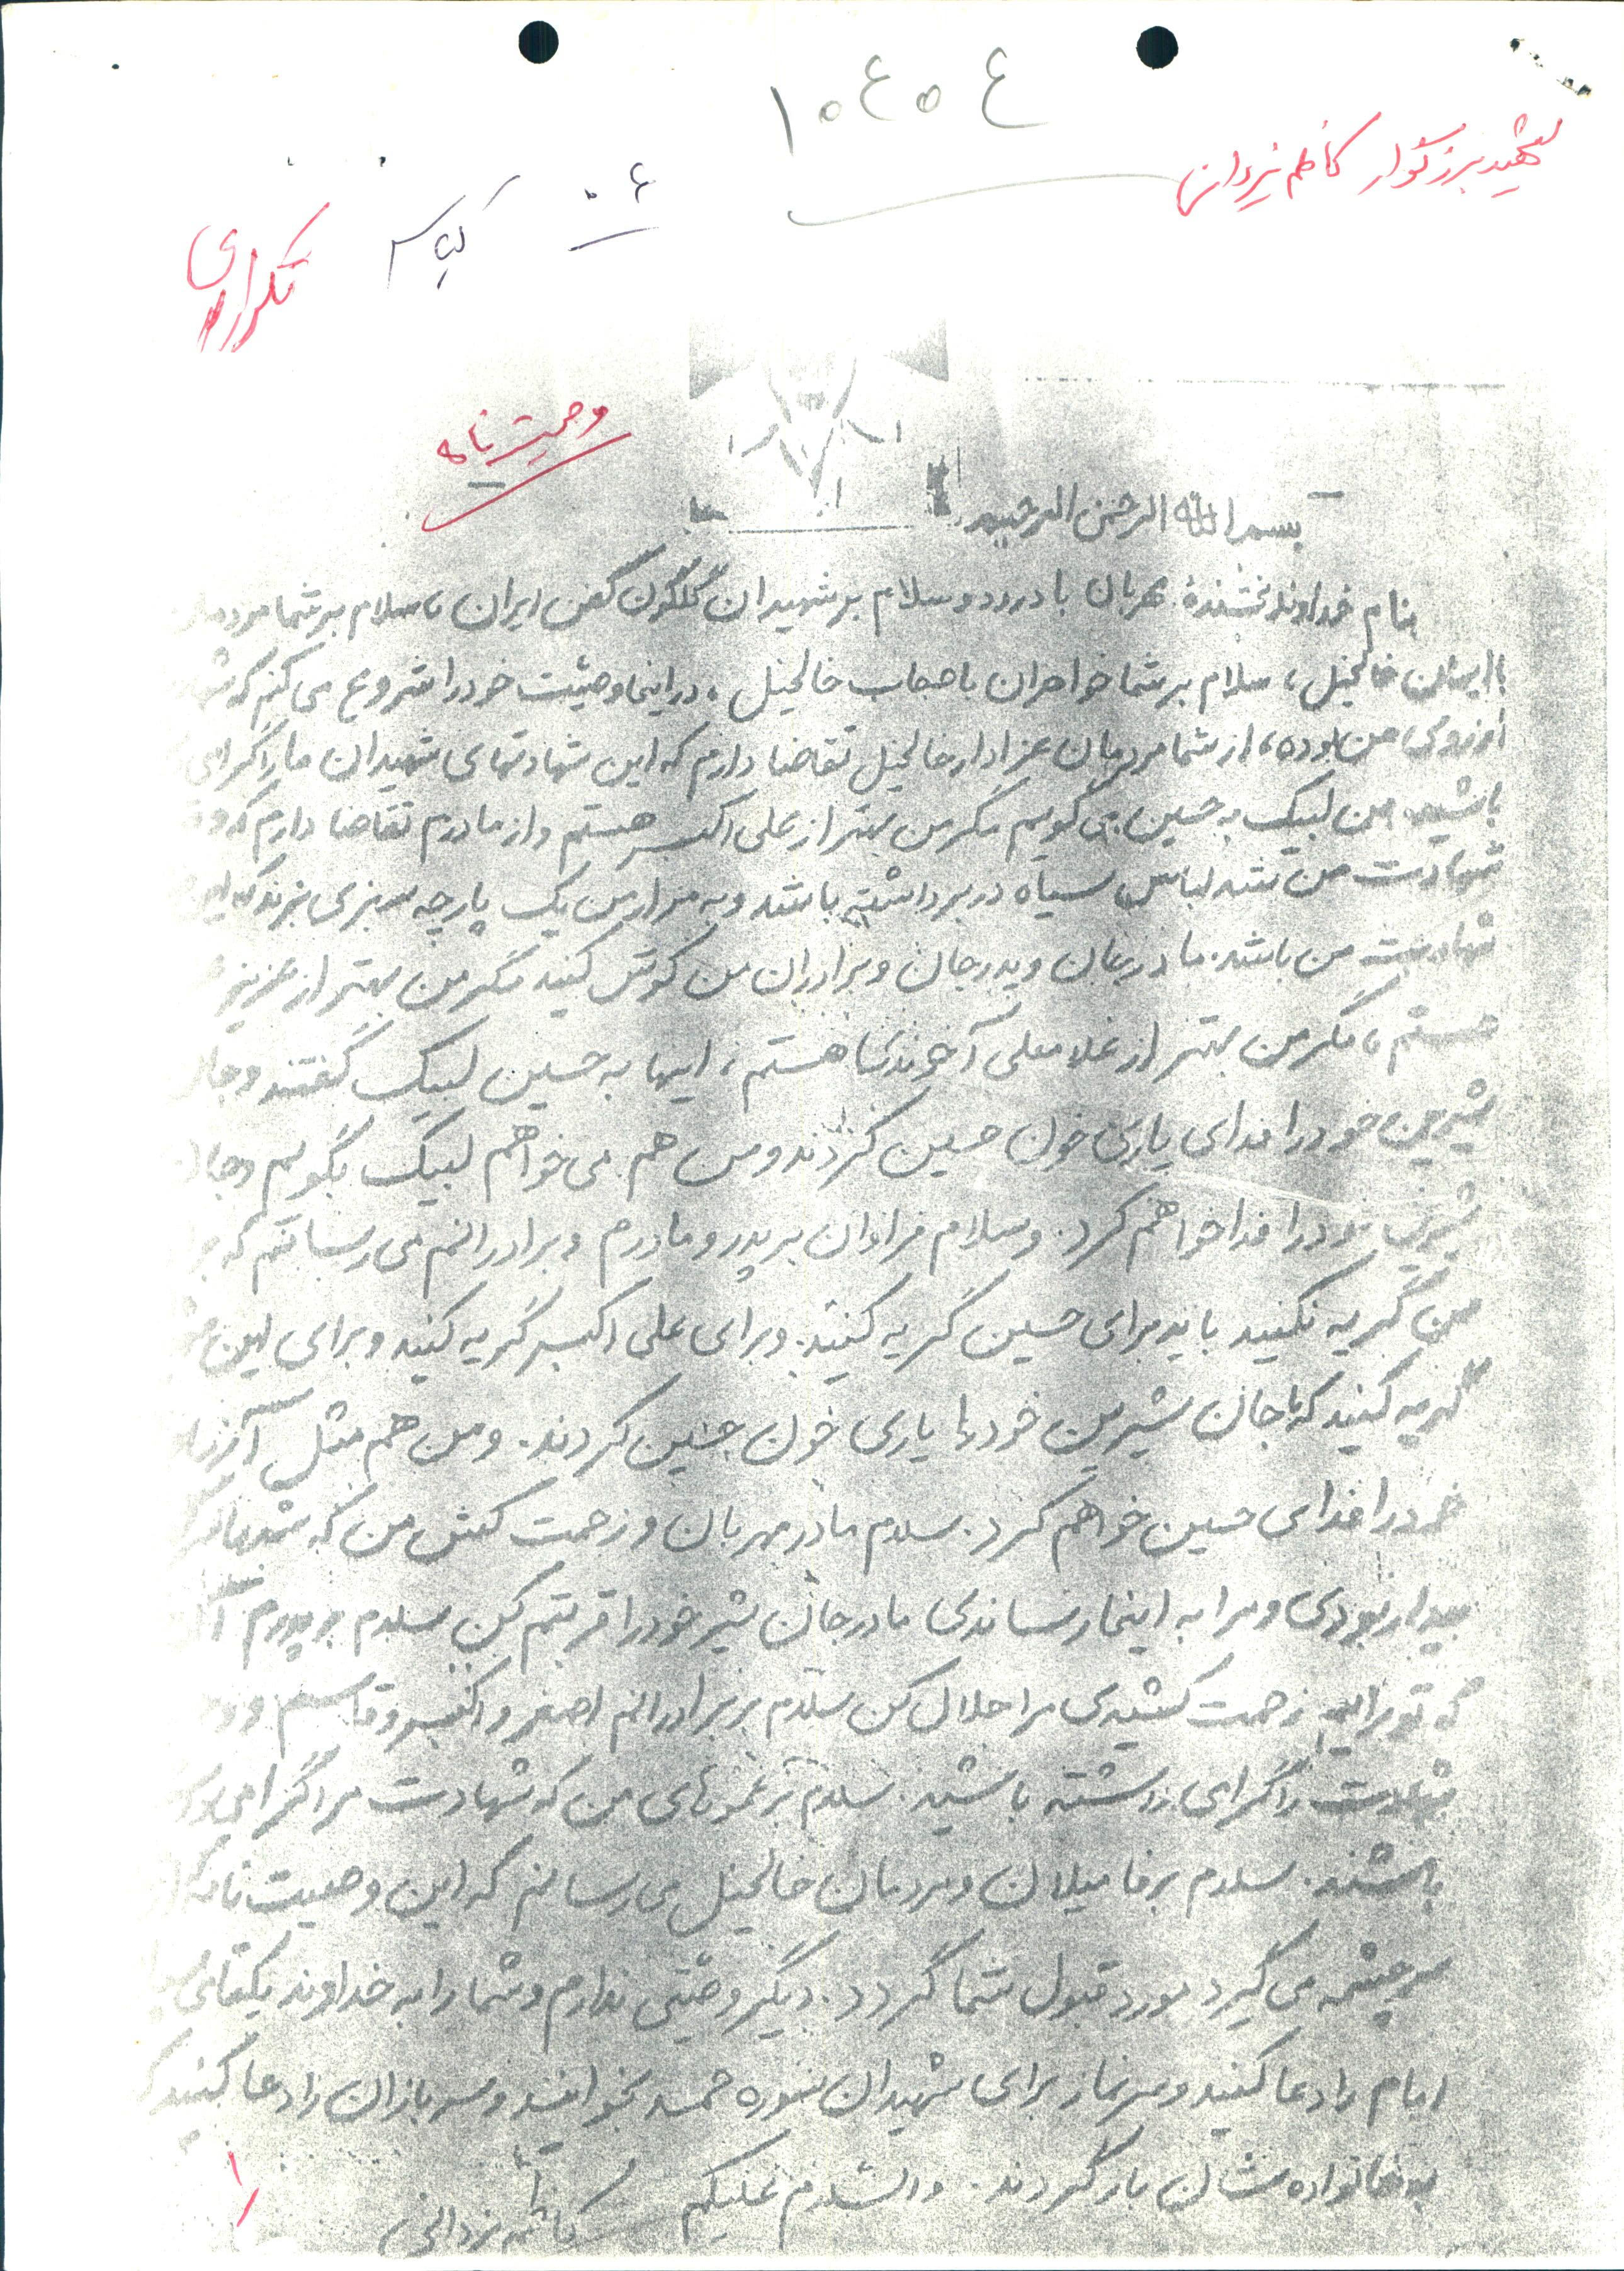 ۱۰۴۰۴
شهید بزرگوار کاظم یزدانی
۰۶
تکراری
وصیت نامه
بسم الله الرحمن الرحیم
بنام خداوند بخشندهٔ مهربان با درود و سلام بر شهیدان گلگون کفن ایران، سلام بر شما مردمان
با ایمان خالخیل، سلام بر شما خواهران با حجاب خالخیل. در اینجا وصیت خود را شروع می کنم که
آرزوی من بوده، از شما مردمان عزادار خالخیل تقاضا دارم که این شهادتهای شهیدان ما را گرامی
باشید من لبیک به حسین می گویم مگر من بهتر از علی اکبر هستم و از مادرم تقاضا دارم که
شهادت من شد لباس سیاه در بر داشته باشد و به مزار من یک پارچه سبزی بزند که این
شهادت من باشد. مادر جان و پدر جان و برادران من گوش کنید مگر من بهتر از عزیز
هستم، مگر من بهتر از غلامعلی آخوندی هستم، اینها به حسین لبیک گفتند و جان
شیرین خود را فدای یاری خون حسین کردند و من هم می خواهم لبیک بگویم و جان
شیرین خود را فدا خواهم کرد. و سلام فراوان بر پدر و مادرم و برادرانم می رسانم که
من گریه نکنید باید برای حسین گریه کنید. و برای علی اکبر گریه کنید و برای این
گریه کنید که با جان شیرین خود یاری خون حسین کردند. و من هم مثل
خود را فدای حسین خواهم کرد. سلام مادر مهربان و زحمت کش من که شبها
بیدار بودی و مرا به اینجا رساندی مادر جان شیر خود را قربتم کن سلام بر پدرم
که تو برایم زحمت کشیدی مرا حلال کن سلام بر برادرانم اصغر و اکبر و قاسم و
شهادت را گرامی داشته باشید. سلام بر عموهای من که شهادت مرا گرامی
باشند. سلام بر فامیلان و مردمان خالخیل می رسانم که این وصیت نامه
سرچشمه می گیرد مورد قبول شما گردد. دیگر وصیتی ندارم و شما را به خداوند یکتای
امام را دعا کنید و سر نماز برای شهیدان سوره حمد بخوانید و سربازان را دعا کنید
به خانواده شان باز گردند. والسلام علیکم
کاظم یزدانی
۱